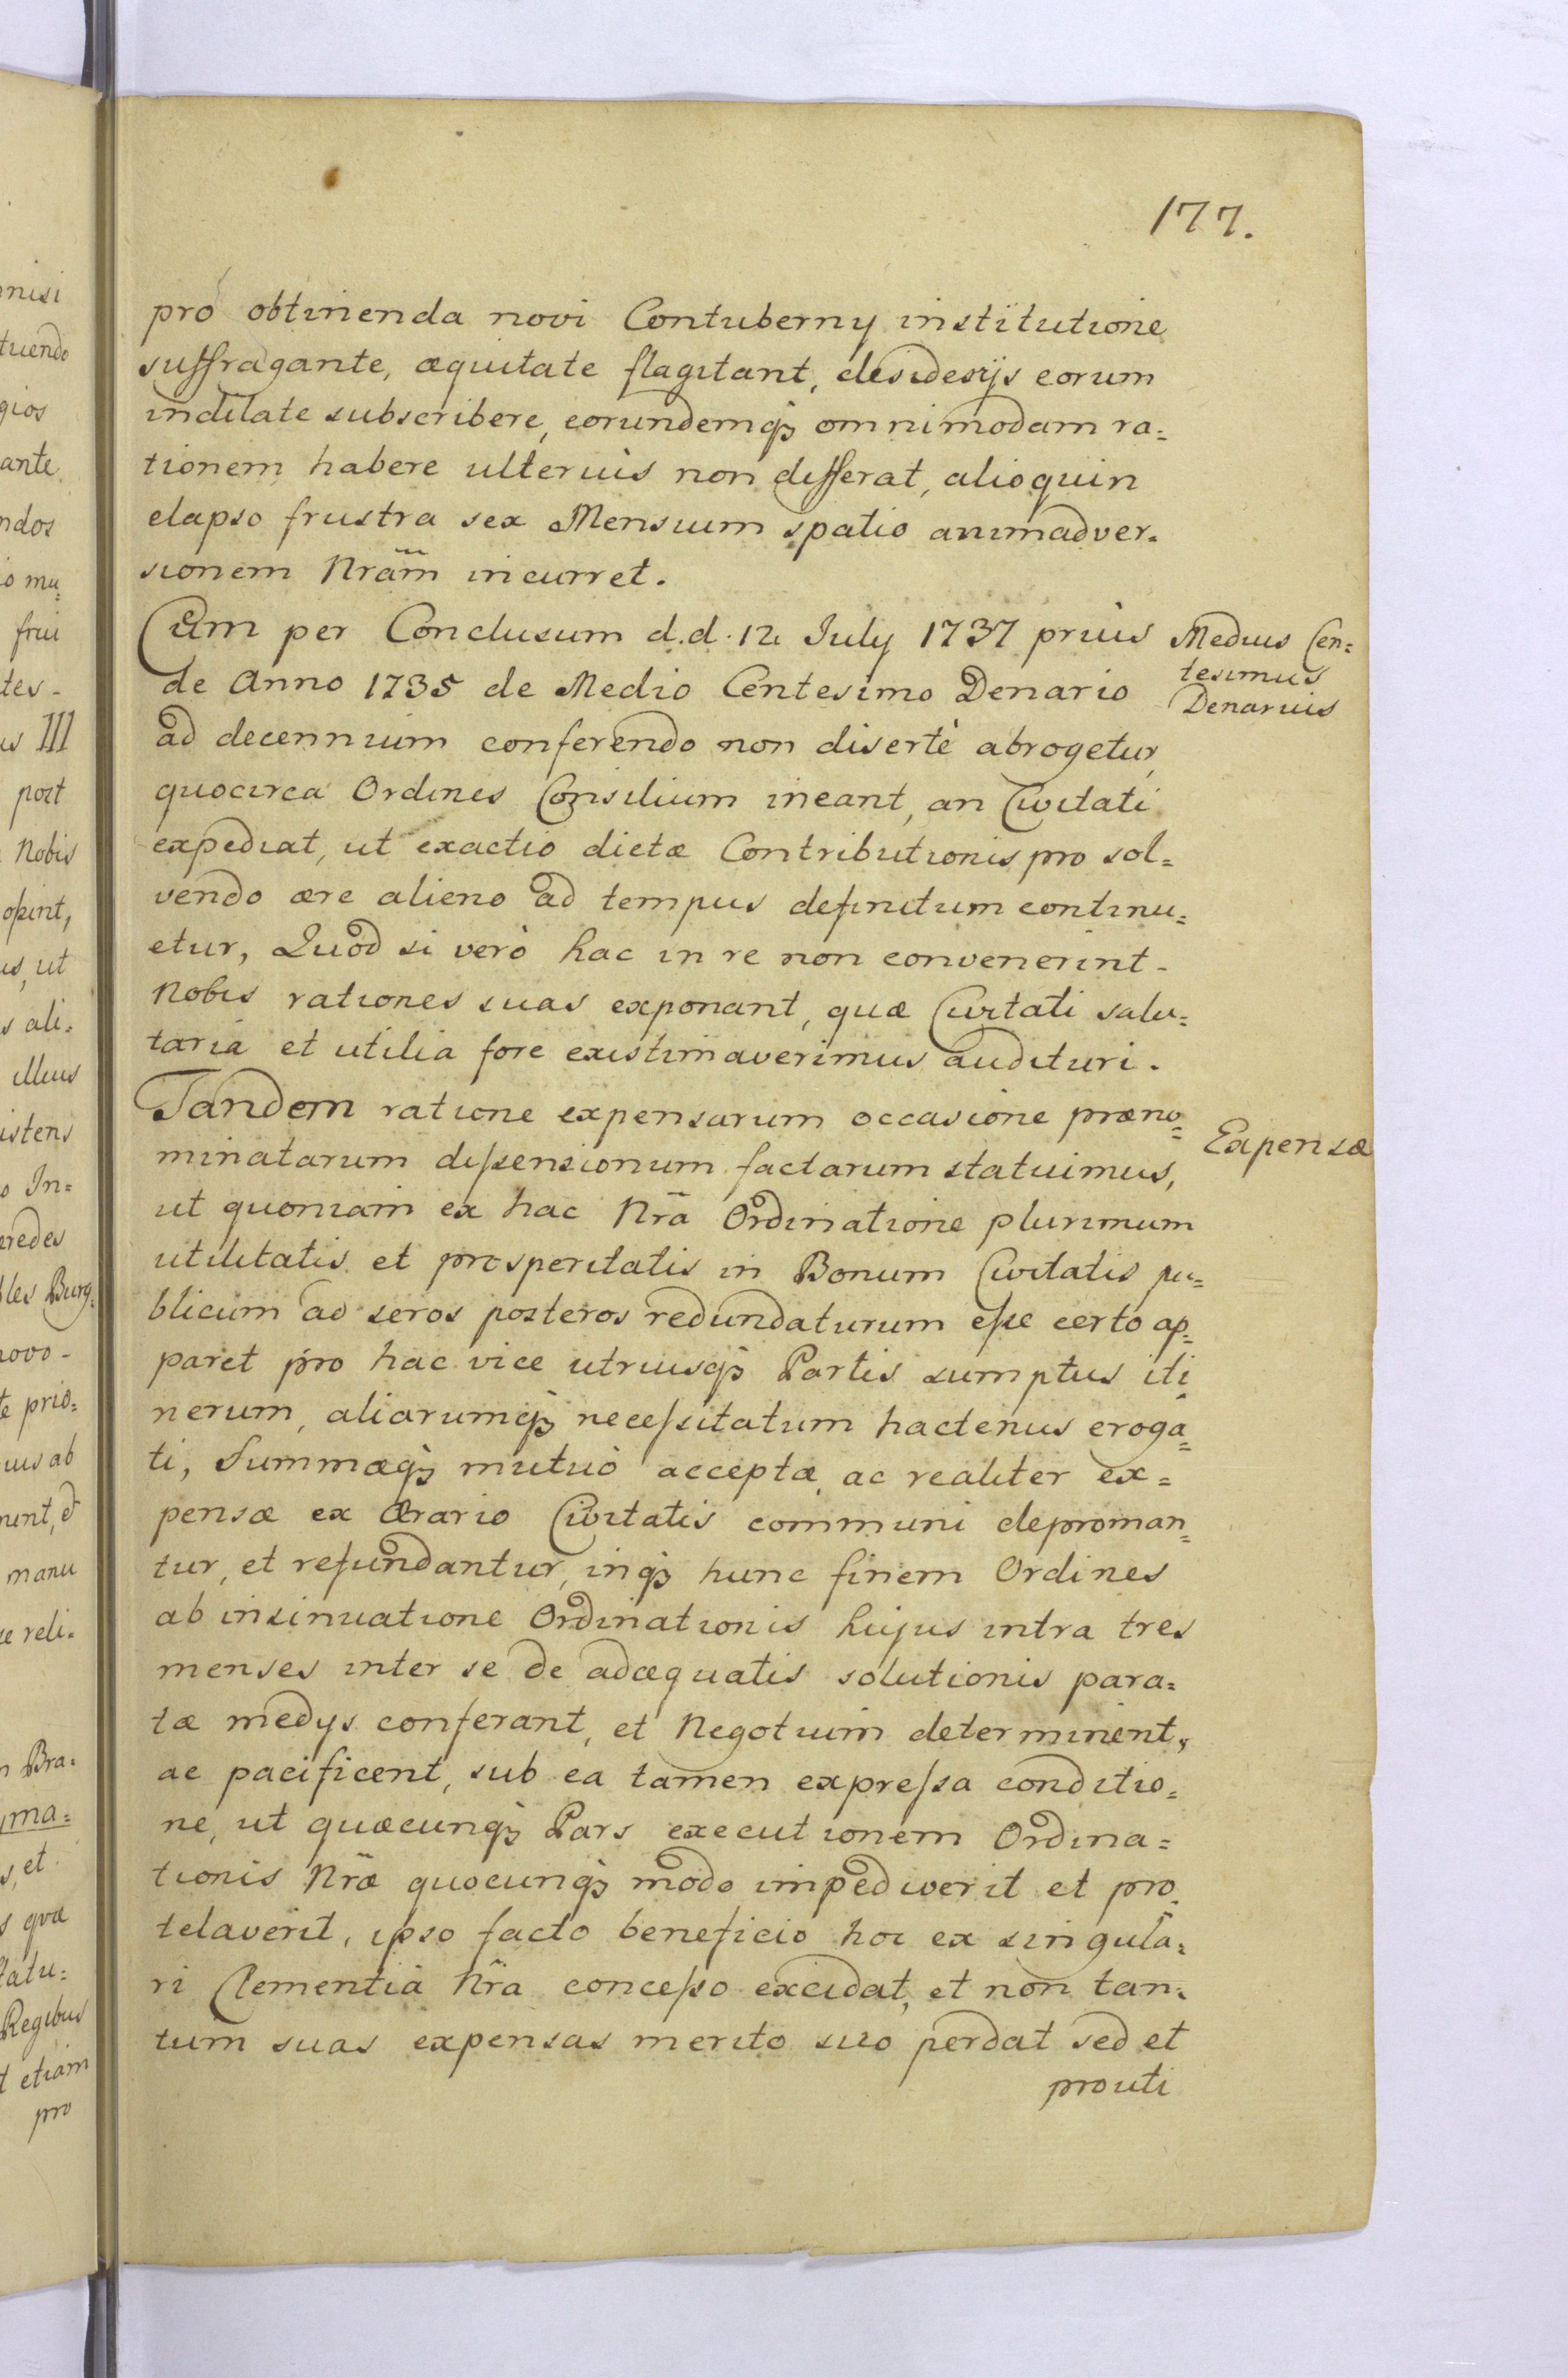 177.
pro obtinenda novi Contuberny institutione
suffragante, æquitate flagitant, desiderijs eorum
indilate subscribere, eorundemq₃ omnimodam ra=
tionem habere ulterius non differat, alioquin
elapso frustra sex Mensium spatio animadver=
sionem Nram̃ incurret.
Cum per Conclusum d.d. 12 July 1737 prius
de Anno 1735 de Medio Centesimo Denario
ad decennium conferendo non disertè abrogetur,
quocirca Ordines Consilium ineant, an Civitati
expediat, ut exactio dictæ Contributionis pro sol=
vendo ære alieno ad tempus definitum continu=
etur, Quod si verò hac in re non convenerint-
Nobis rationes suas exponant, quæ Civitati salu=
taria et utilia fore existimaverimus audituri.
Medius Cen=
tesimus
Denarius
Tandem ratione expensarum occasione præno=
minatarum dissensionum factarum statuimus,
ut quoniam ex hac Nrã Ordinatione plurimum
utilitatis et prosperitatis in Bonum Civitatis pu=
blicum ad seros posteros redundaturum esse certo ap=
paret pro hac vice utriusq₃ Partis sumptus iti=
nerum, aliarumq₃ necessitatum hactenus eroga=
ti, Summæq₃ mutuò acceptæ, ac realiter ex=
pensæ ex Ærario Civitatis communi deproman=
tur, et refundantur, inq₃ hunc finem Ordines
ab insinuatione Ordinationis hujus intra tres
menses inter se de adæquatis solutionis para=
tæ medys conferant, et Negotium determinent,
ac pacificent, sub ea tamen expressa conditio=
ne, ut quæcunq₃ Pars executionem Ordina=
tionis Nræ̃ quocunq₃ modo impediverit et pro=
telaverit, ipso facto beneficio hoc ex singula=
ri Clementiâ Nrã concesso excidat, et non tan=
tum suas expensas merito suo perdat sed et
prouti
Expensæ